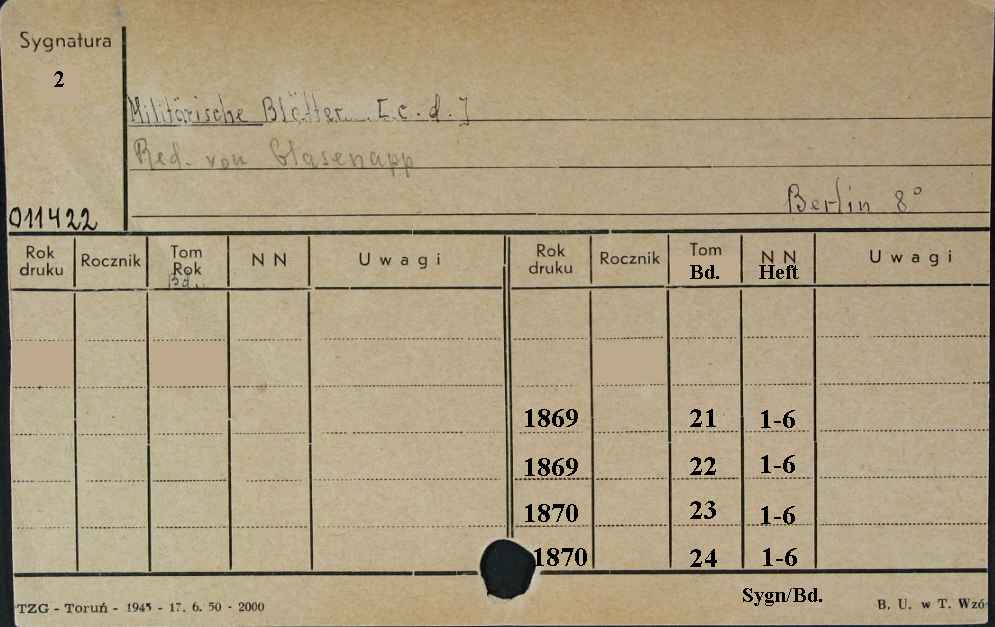 Sygnatura
2
Militärische Blätter. [c.d.]
Red. von Glasenapp
Berlin 8°
011422
Rok druku Rocznik Tom Rok Bd. N N Uwagi Rok druku Rocznik Tom Bd. N N Heft Uwagi
1869 21 1-6
1869 22 1-6
1870 23 1-6
1870 24 1-6
Sygn/Bd.
TZG - Toruń - 1945 - 17. 6. 50 - 2000
B. U. w T. Wzó